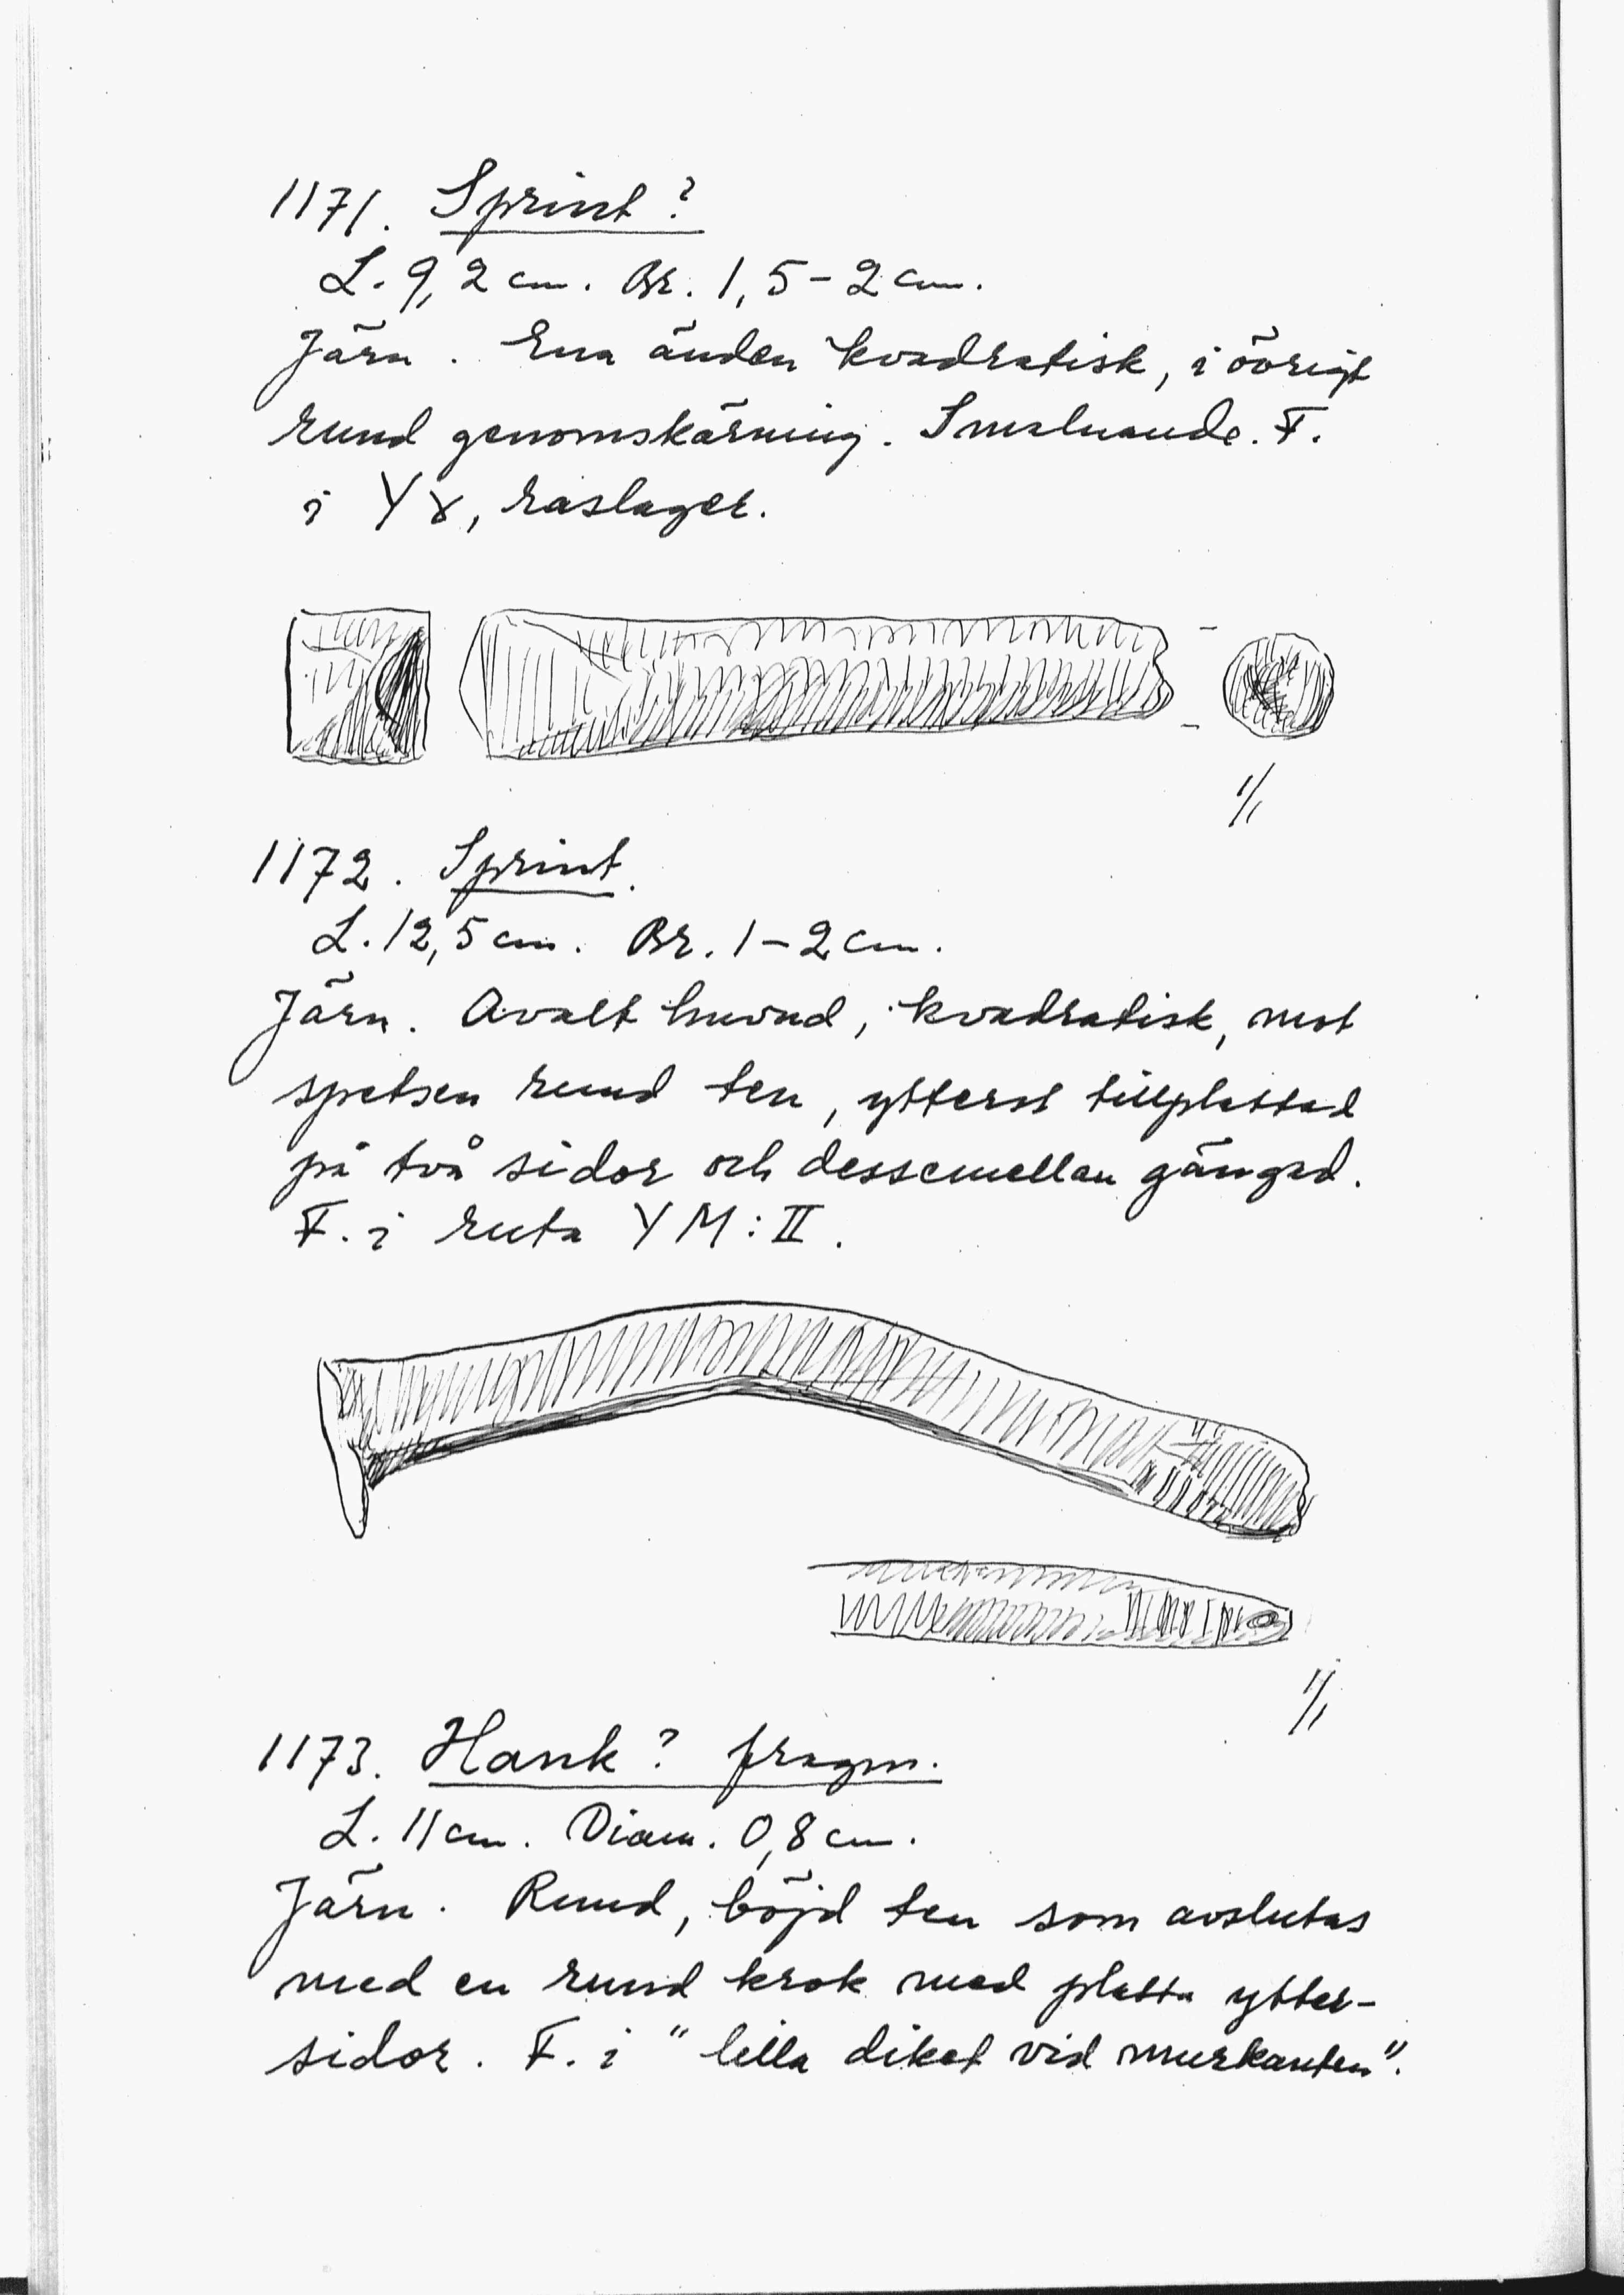 1171. Sprint?
L. 9,2 cm. Br. 1,5-2 cm.
Järn. Ena änden kvadratisk, i övrigt
rund genomskärning. Smalnande. F.
i YX, raslager.
1/1
1172. Sprint.
L. 12,5 cm. Br. 1-2 cm.
Järn. Ovalt huvud, kvadratisk, mot
spetsen rund ten, ytterst tillplattad
på två sidor och dessemellan gängad.
F. i ruta YM:II.
1/1
1173. Hank? fragm.
L. 11 cm. Diam. 0,8 cm.
Järn. Rund, böjd ten som avslutas
med en rund krok med platta ytter-
sidor. F. i "lilla diket vid murkanten".